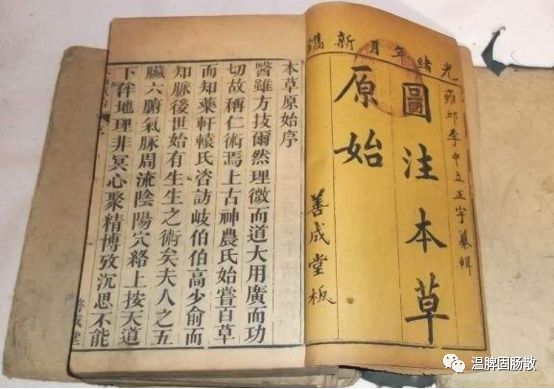 光緒年月新鐫
雍邱李中立正宇纂輯
圖注本草
原始
善成堂板
本草原始序
醫雖方技爾然理微而道大用廣而功
切故稱仁術焉上古神農氏始嘗百草
而知藥軒轅氏咨訪岐伯伯高少俞而
知脉後世始有生生之術矣夫人之五
臟六腑氣脉周流陰陽穴絡上按天道
下侔地理非冥心聚精博攷沉思不能
善成堂
温脾固肠散